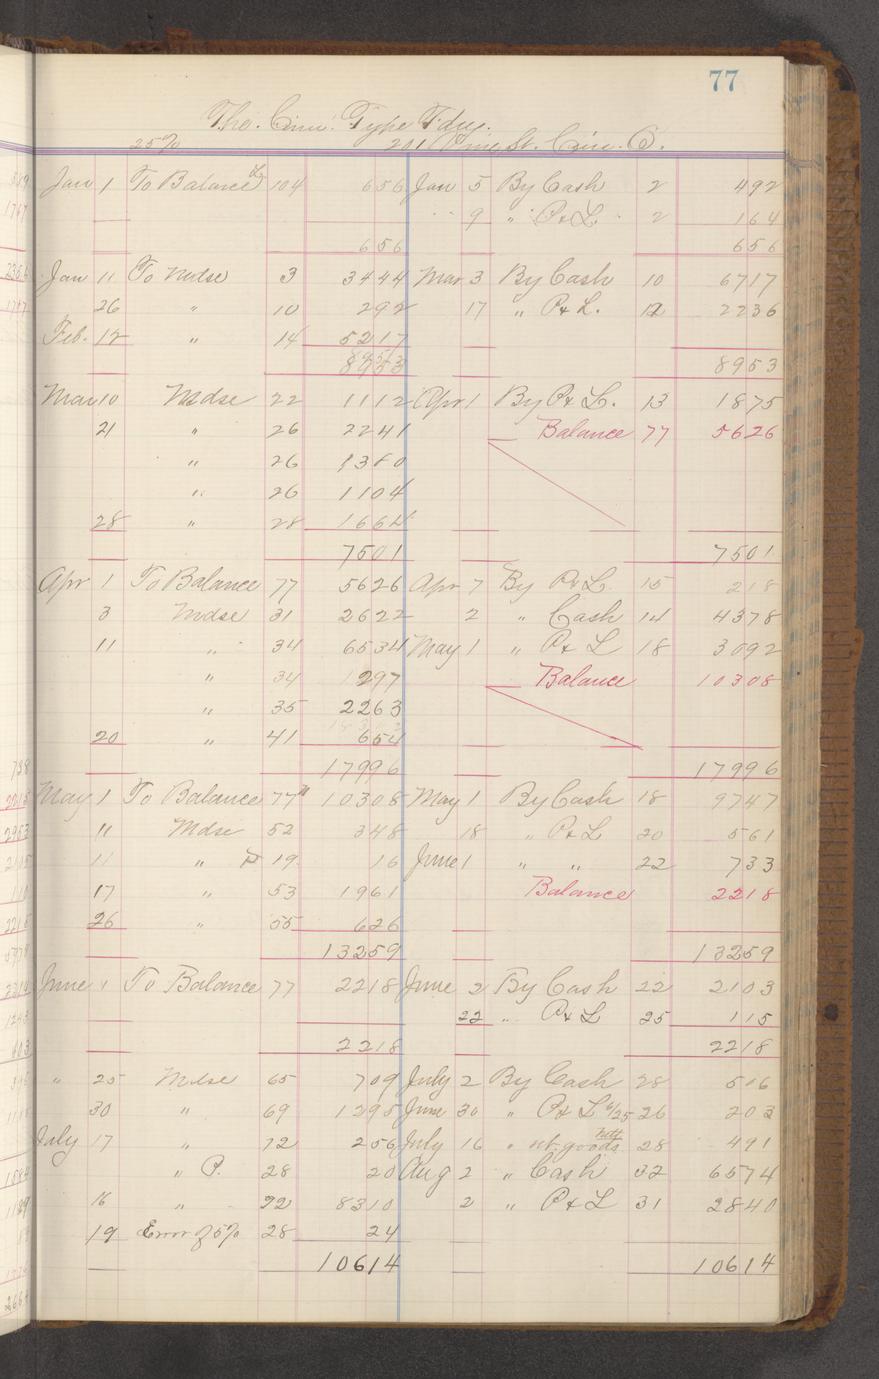 77
The. Cinn. Type Fdry.
25% 201 Vine St. Cin. O.
Jan 1 To Balance 104 656 Jan 5 By Cash 2 492
9 " P&L 2 164
656 656
Jan 11 To Mdse 3 3444 Mar 3 By Cash 10 6717
26 " 10 292 17 " P&L. 12 2236
Feb. 12 " 14 5217
8953 8953
Mar 10 Mdse 22 1112 Apr 1 By P&L. 13 1875
21 " 26 2241 Balance 77 5626
" 26 1380
" 26 1104
28 " 28 1664
7501 7501
Apr 1 To Balance 77 5626 Apr 7 By P&L 15 218
3 Mdse 31 2622 2 " Cash 14 4378
11 " 34 6534 May 1 " P&L 18 3092
" 34 297 Balance 10308
" 35 2263
20 " 41 654
17996 17996
May 1 To Balance 77 10308 May 1 By Cash 18 9747
11 Mdse 52 348 18 " P&L 20 561
11 " P 19 16 June 1 " " 22 733
17 " 53 1961 Balance 2218
26 " 55 626
13259 13259
June 1 To Balance 77 2218 June 2 By Cash 22 2103
22 " P&L 25 115
2218 2218
" 25 Mdse 65 709 July 2 By Cash 28 506
30 " 69 1295 June 30 " P&L 6/25 26 203
July 17 " 72 256 July 16 " goods 28 491
" P. 28 20 Aug 2 " Cash 32 6574
16 " 72 8310 2 " P&L 31 2840
19 Error of 5% 28 24
10614 10614